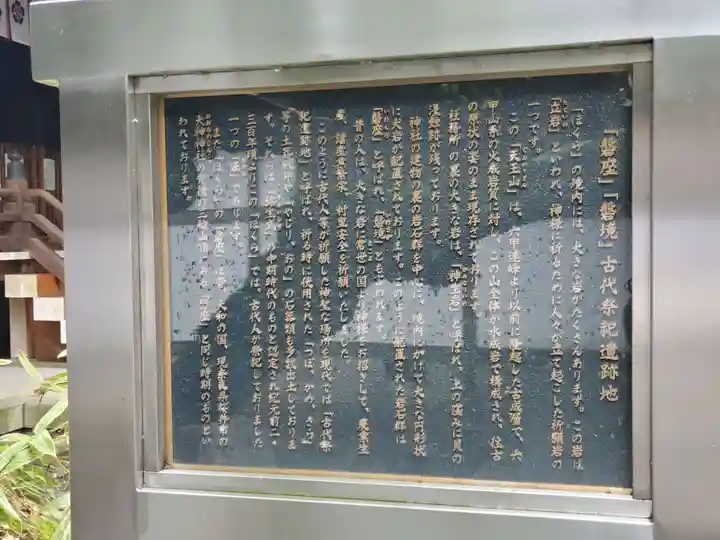 「磐座」「磐境」古代祭祀遺跡地
「ほくら」の境内には、大きな岩がたくさんあります。この岩は
「立岩」といわれ、神様に祈るために人々が立て起こした祈願岩の
一つです。
この「天王山」は、六甲連峰より以前に隆起した古成層で、六
甲山系の火成岩質に対し、この山全体が水成岩で構成され、往古
の原状の姿のまま現存されて
社務所の裏の大きな岩は、「神立岩」と呼ばれ、上の窪みに貝の
浸蝕跡が残っております。
神社の建物の裏の岩石群を中心に、境内にかけて大きな円形状
に大岩が配置されております。このように配置された岩石群は
「磐座」と呼ばれ、「磐境」ともいわれます。
昔の人は、大きな岩に常世の国より神様をお招きして、農業生
産、諸産業繁栄、村里安全を祈願いたしました
このように古代人が祈願した神聖な場所を現代では「古代祭
祀遺跡地」と呼ばれ、祈る時に使用された「つぼ、かめ、さら」
等の土器破片や「やじり、おの」の石器類も多数出土しておりま
す。それらは「弥生式」の中期時代のものと認定され紀元前二
三百年頃にこの「ほくら」では、古代人が祭祀しておりました
一つの「証」であります。
また「ほくら」の「磐座」は、大和の国、現奈良県桜井市の
大神神社の三輪山頂にある「磐座」と同じ時期のものとい
われております。